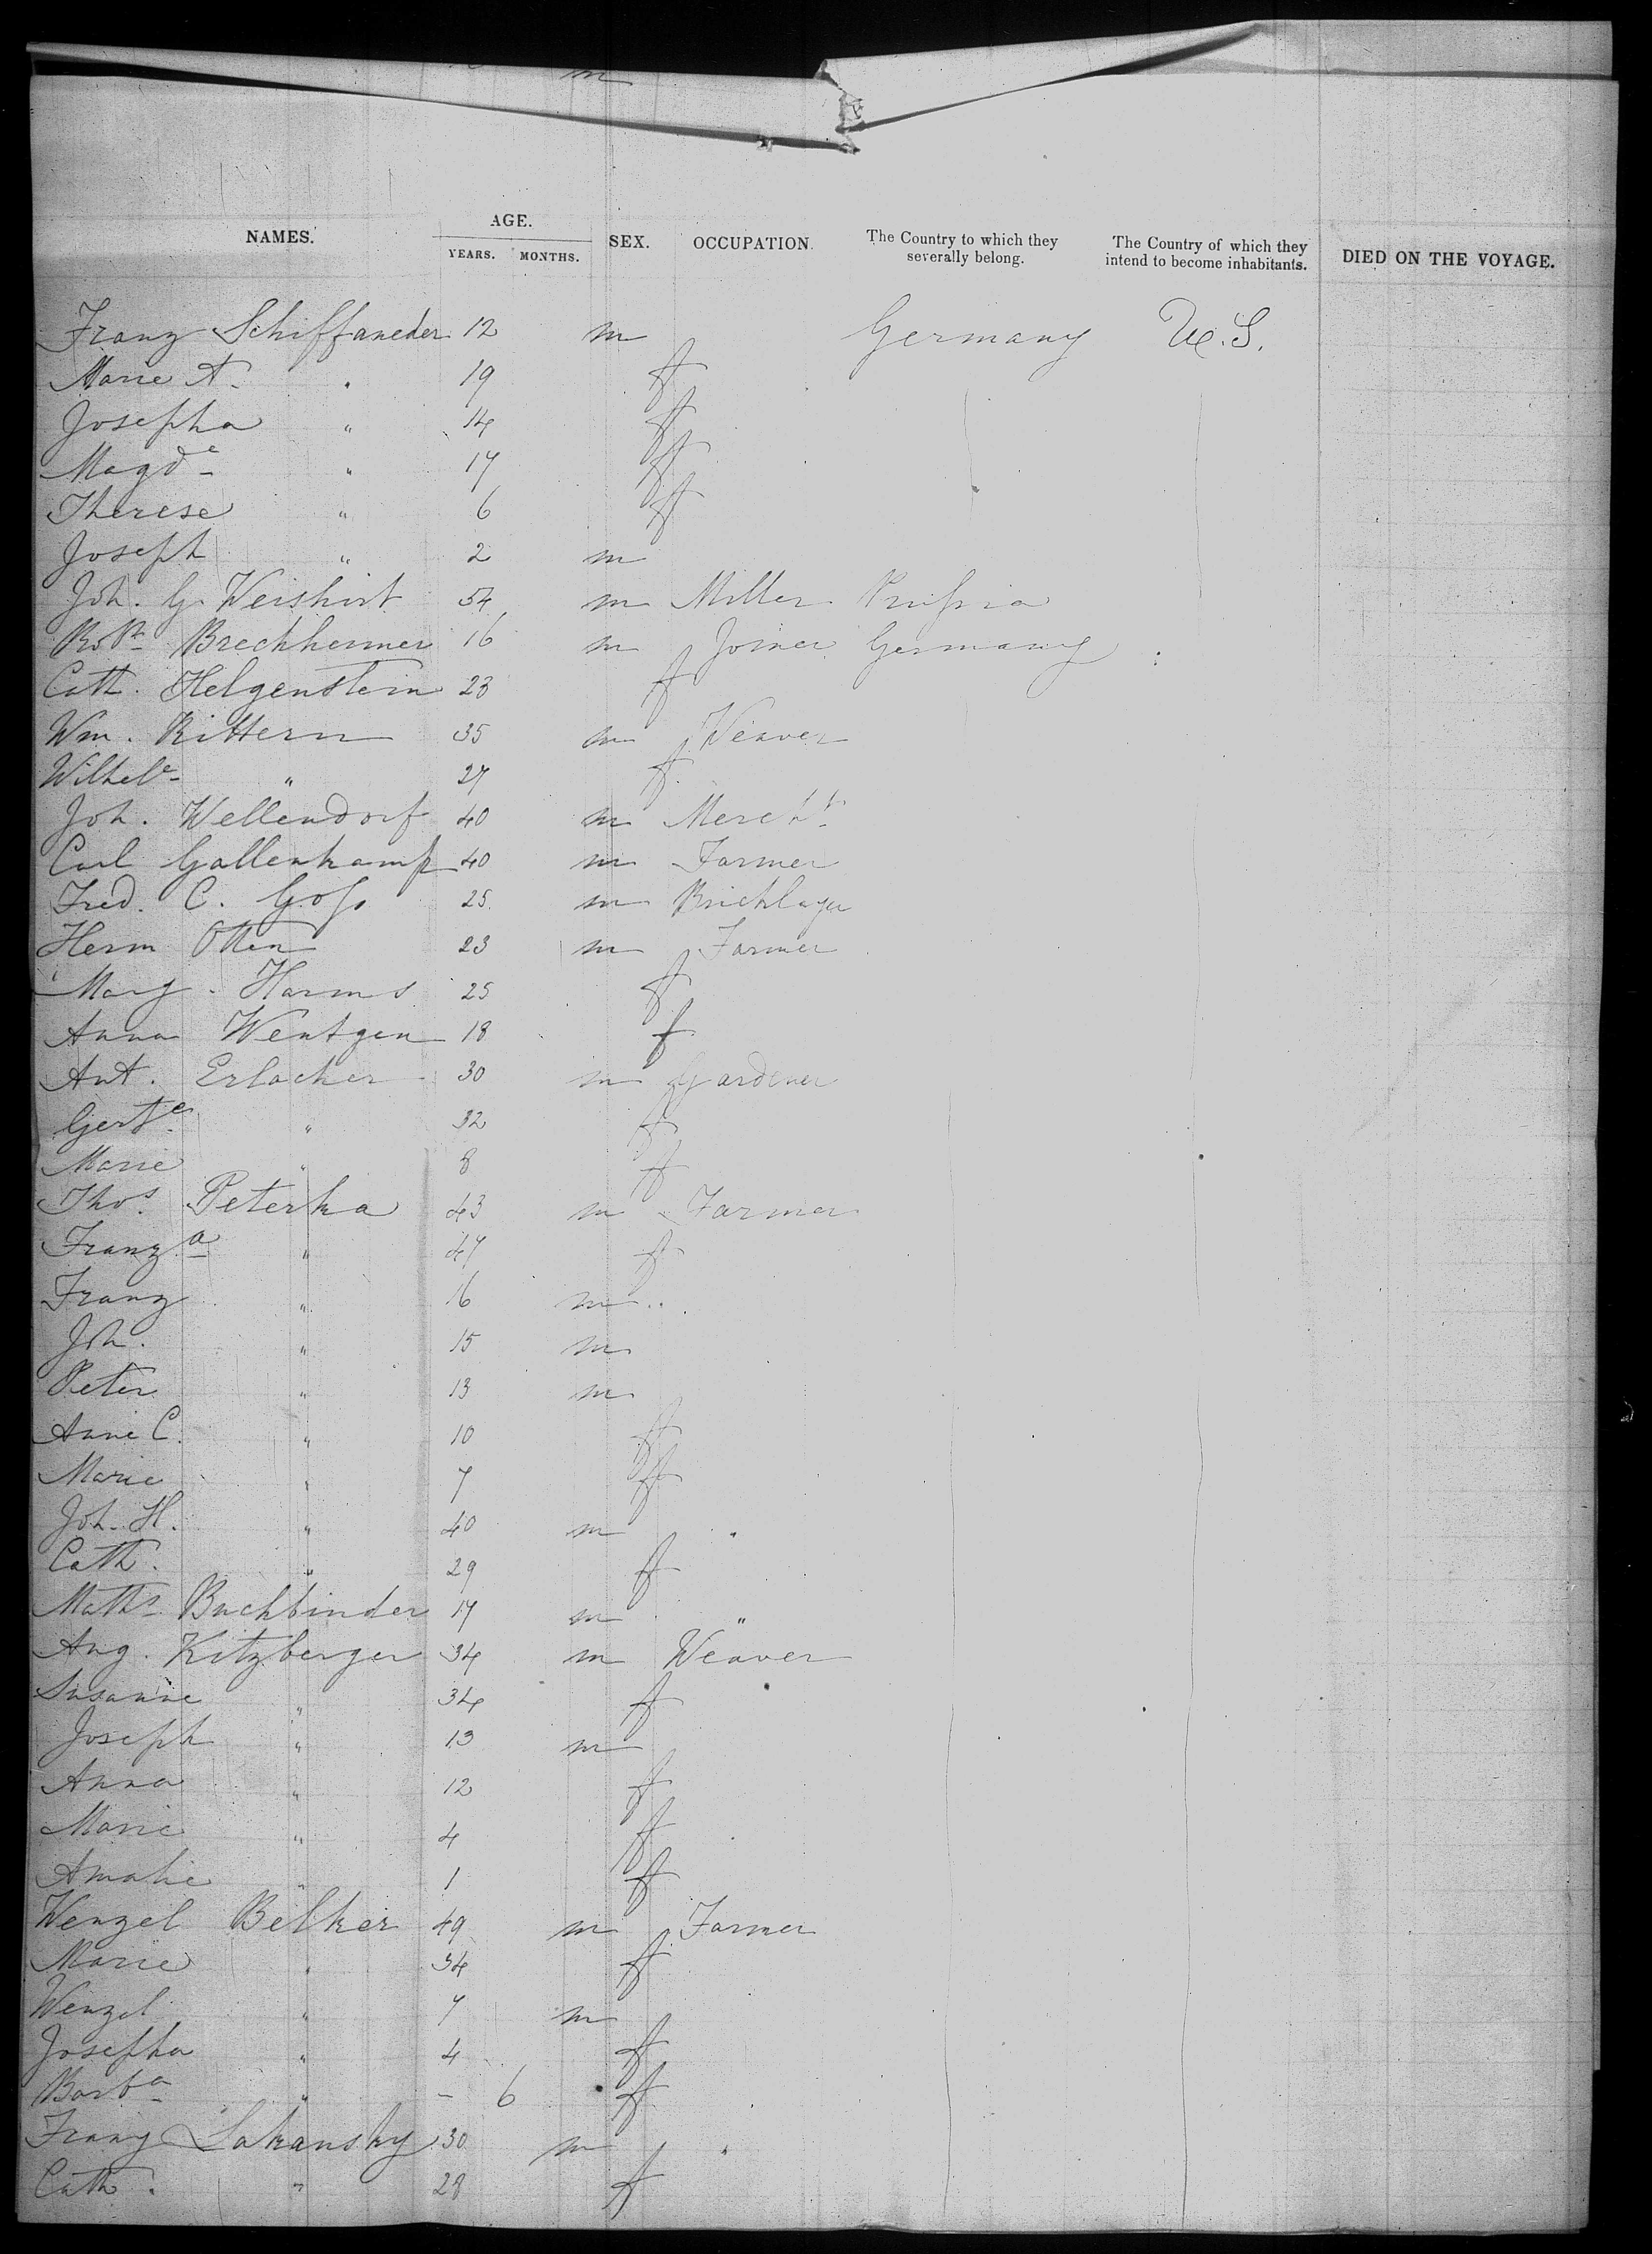 m
NAMES. AGE. YEARS. MONTHS. SEX. OCCUPATION. The Country to which they severally belong. The Country of which they intend to become inhabitants. DIED ON THE VOYAGE.
Franz Schiffaneder 12 m Germany U.S.
Marie A. " 19 f
Josepha " 14 f
Magde " 17 f
Therese " 6 f
Joseph " 2 m
Joh. G. Weishirt 54 m Miller Prussia
Robt Brechheimer 16 m Joiner Germany
Cath. Helgenstein 23 f
Wm. Rittern 35 m Weaver
Wilhele " 27 f
Joh. Wellendorf 40 m Mercht
Carl Gallenkamp 40 m Farmer
Fred. C. Goss 25 m Bricklayer
Herm Otten 23 m Farmer
Marg. Harms 25 f
Anna Wentgen 18 f
Ant. Erlacher 30 m Gardener
Gerte " 32 f
Marie " 8 f
Thos. Peterka 43 m Farmer
Franza " 47 f
Franz " 16 m
Joh. " 15 m
Peter " 13 m
Anne C. " 10 f
Marie " 7 f
Joh. H. " 40 m "
Cath. " 29 f
Maths Buchbinder 17 m "
Aug. Kitzberger 34 m Weaver
Susanne " 34 f
Joseph " 13 m
Anna " 12 f
Marie " 4 f
Amalie " 1 f
Wenzel Belker 49 m Farmer
Marie " 34 f
Wenzel " 7 m
Josepha " 4 f
Barba " – 6 f
Franz Lakansky 30 m "
Cath. " 28 f